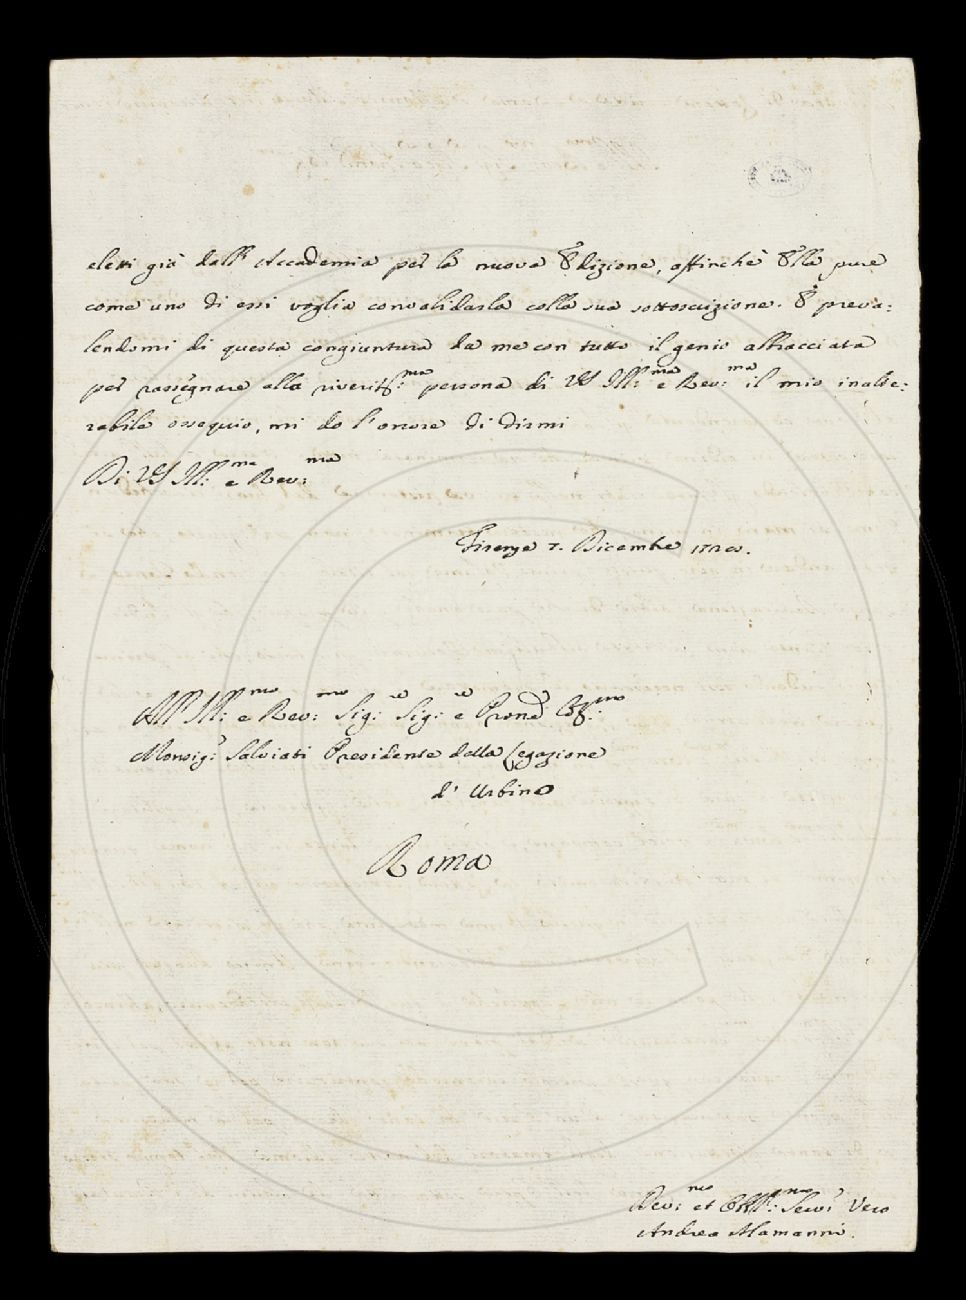 eletti già dall'Accademia per la nuova Edizione, affinchè Ella pure
come uno di essi voglia convalidarla colla sua sottoscrizione. E preva:
lendomi di questa congiuntura da me con tutto il genio abbracciata
per rassegnare alla riveritss:ma persona di VS Ill:ma e Rev:ma il mio inalte:
rabile ossequio, mi do l'onore di dirmi
Di VS Ill:ma e Rev:ma
Firenze 7. Dicembre
All' Ill:mo e Rev:mo Sig:e Sig:e e Prone
Monsig: Salviati Presidente della Legazione
d' Urbino
Roma
Dev:mo et Obb:mo Serv: Vero
Andrea Alamanni.